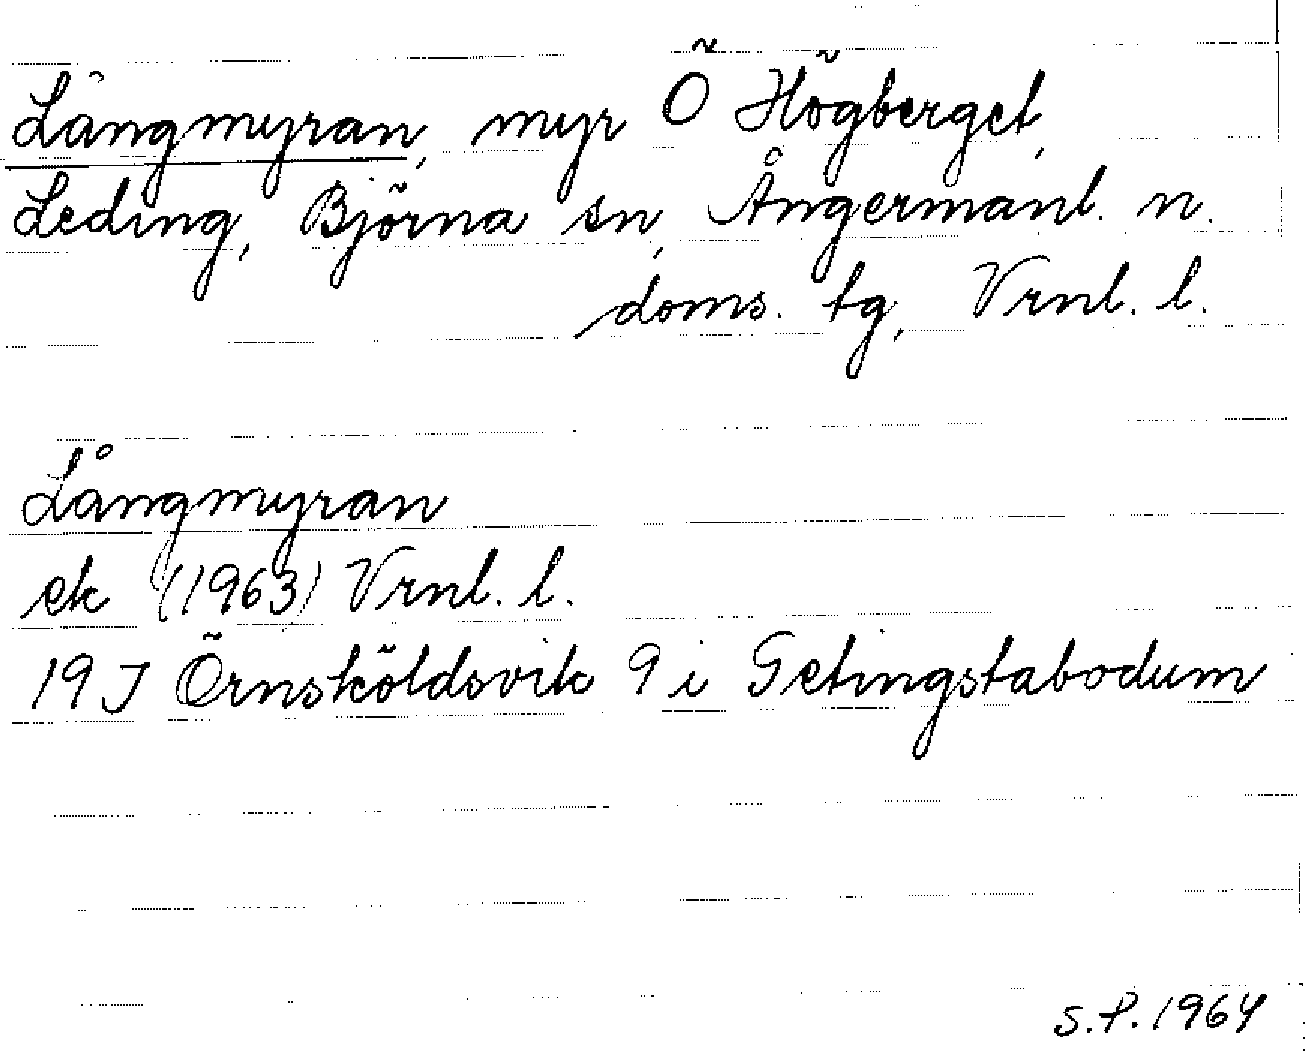 Långmyran, myr Ö Högberget,
Leding, Björna sn, Ångermanl. n.
doms. tg, Vrnl. l.
Långmyran
ek (1963) Vrnl. l.
19J Örnsköldsvik 9 i Getingstabodum
S.P. 1964